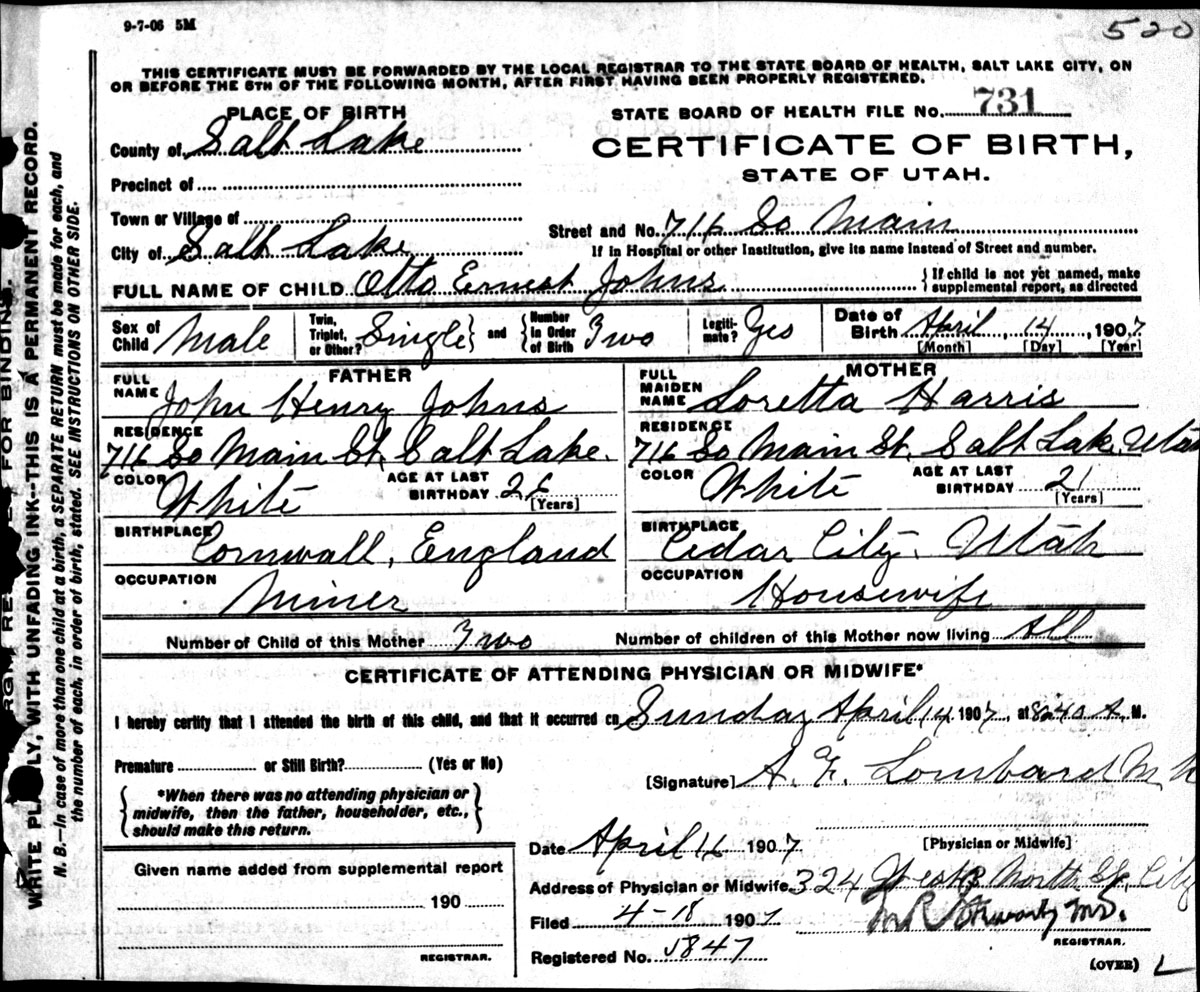 9-7-06 5M
520
THIS CERTIFICATE MUST BE FORWARDED BY THE LOCAL REGISTRAR TO THE STATE BOARD OF HEALTH, SALT LAKE CITY, ON
OR BEFORE THE 5TH OF THE FOLLOWING MONTH, AFTER FIRST HAVING BEEN PROPERLY REGISTERED.
PLACE OF BIRTH
STATE BOARD OF HEALTH FILE No. 731
County of Salt Lake
CERTIFICATE OF BIRTH,
STATE OF UTAH.
Precinct of
Town or Village of
Street and No. 716 So Main
City of Salt Lake
If in Hospital or other Institution, give its name instead of Street and number.
FULL NAME OF CHILD Otto Ernest Johns
{ If child is not yet named, make
supplemental report, as directed
Sex of Child Male
Twin, Triplet, or Other? Single } and { Number in Order of Birth Two
Legiti-mate? Yes
Date of Birth April 14, 1907
[Month] [Day] [Year]
FATHER
FULL NAME John Henry Johns
RESIDENCE
716 So Main St. Salt Lake.
COLOR White
AGE AT LAST BIRTHDAY 26
[Years]
BIRTHPLACE
Cornwall, England
OCCUPATION
Miner
MOTHER
FULL MAIDEN NAME Loretta Harris
RESIDENCE
716 So Main St. Salt Lake, Utah
COLOR White
AGE AT LAST BIRTHDAY 21
[Years]
BIRTHPLACE
Cedar City, Utah
OCCUPATION
Housewife
Number of Child of this Mother Two
Number of children of this Mother now living All
CERTIFICATE OF ATTENDING PHYSICIAN OR MIDWIFE*
I hereby certify that I attended the birth of this child, and that it occurred on Sunday April 14, 1907, at 8:40 A. M.
Premature or Still Birth? (Yes or No)
[Signature] A. F. Lombard
{ *When there was no attending physician or
midwife, then the father, householder, etc.,
should make this return. }
[Physician or Midwife]
Date April 16 1907
Given name added from supplemental report
Address of Physician or Midwife 324 West 3 North St. City
190
Filed 4-18 1907
M.D.
REGISTRAR.
Registered No. 5847
REGISTRAR.
(OVER)
WRITE PLAINLY, WITH UNFADING INK--THIS IS A PERMANENT RECORD.
N. B.--In case of more than one child at a birth, a SEPARATE RETURN must be made for each, and
the number of each, in order of birth, stated. SEE INSTRUCTIONS ON OTHER SIDE.
FOR BINDING.